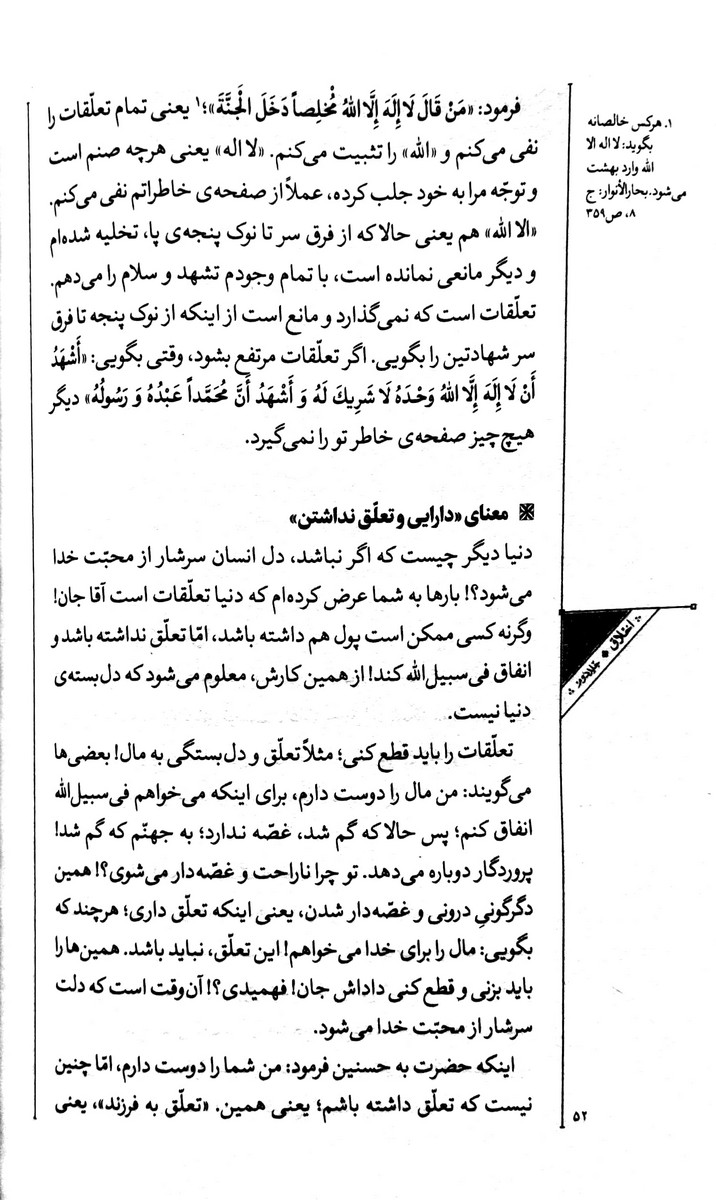 فرمود: «مَنْ قَالَ لَا إِلَهَ إِلَّا اللهُ مُخْلِصاً دَخَلَ الْجَنَّةَ»؛۱ یعنی تمام تعلّقات را
نفی می‌کنم و «الله» را تثبیت می‌کنم. «لا اله» یعنی هرچه صنم است
و توجّه مرا به خود جلب کرده، عملاً از صفحه‌ی خاطراتم نفی می‌کنم.
«الا الله» هم یعنی حالا که از فرق سر تا نوک پنجه‌ی پا، تخلیه شده‌ام
و دیگر مانعی نمانده است، با تمام وجودم تشهد و سلام را می‌دهم.
تعلّقات است که نمی‌گذارد و مانع است از اینکه از نوک پنجه تا فرق
سر شهادتین را بگویی. اگر تعلّقات مرتفع بشود، وقتی بگویی: «أَشْهَدُ
أَنْ لَا إِلَهَ إِلَّا اللهُ وَحْدَهُ لَا شَرِيكَ لَهُ وَ أَشْهَدُ أَنَّ مُحَمَّداً عَبْدُهُ وَ رَسُولُهُ» دیگر
هیچ چیز صفحه‌ی خاطر تو را نمی‌گیرد.
معنای «دارایی و تعلّق نداشتن»
دنیا دیگر چیست که اگر نباشد، دل انسان سرشار از محبّت خدا
می‌شود؟! بارها به شما عرض کرده‌ام که دنیا تعلّقات است آقا جان!
وگرنه کسی ممکن است پول هم داشته باشد، امّا تعلّق نداشته باشد و
انفاق فی‌سبیل‌الله کند! از همین کارش، معلوم می‌شود که دل‌بسته‌ی
دنیا نیست.
تعلّقات را باید قطع کنی؛ مثلاً تعلّق و دل‌بستگی به مال! بعضی‌ها
می‌گویند: من مال را دوست دارم، برای اینکه می‌خواهم فی‌سبیل‌الله
انفاق کنم؛ پس حالا که گم شد، غصّه ندارد؛ به جهنّم که گم شد!
پروردگار دوباره می‌دهد. تو چرا ناراحت و غصّه‌دار می‌شوی؟! همین
دگرگونیِ درونی و غصّه‌دار شدن، یعنی اینکه تعلّق داری؛ هرچند که
بگویی: مال را برای خدا می‌خواهم! این تعلّق، نباید باشد. همین‌ها را
باید بزنی و قطع کنی داداش جان! فهمیدی؟! آن‌وقت است که دلت
سرشار از محبّت خدا می‌شود.
اینکه حضرت به حسنین فرمود: من شما را دوست دارم، امّا چنین
نیست که تعلّق داشته باشم؛ یعنی همین. «تعلّق به فرزند»، یعنی
۱. هرکس خالصانه
بگوید: لا اله الا
الله وارد بهشت
می‌شود. بحارالأنوار: ج
۸، ص۳۵۹
۵۲